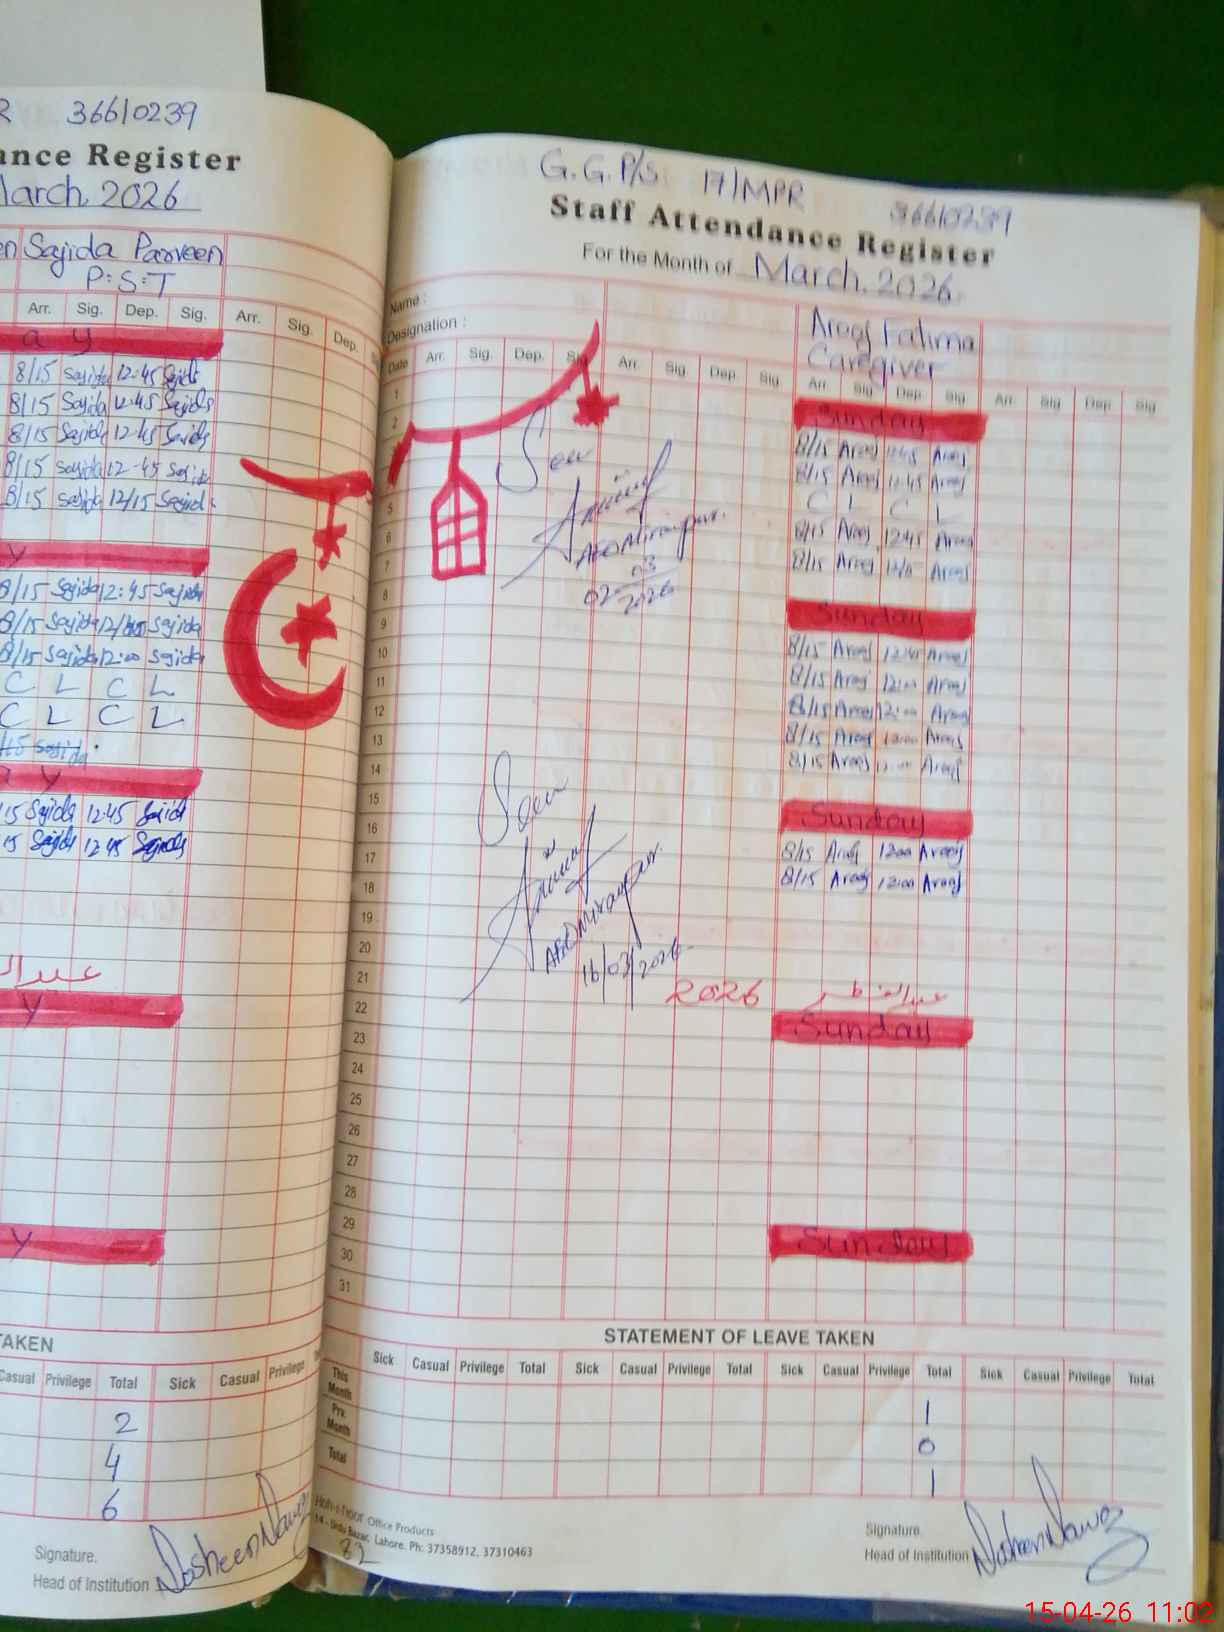 R 36610239
ance Register
March. 2026
en Sajida Parveen
P:S:T
Arr. Sig. Dep. Sig. Arr. Sig. Dep.
a y
8/15 Sajida 12:45 Sajida
8/15 Sajida 12:45 Sajida
8/15 Sajida 12:45 Sajida
8/15 Sajida 12-45 Sajida
8/15 Sajida 12/15 Sajida
y
8/15 Sajida 12:45 Sajida
8/15 Sajida Sajida
8/15 Sajida 12:00 Sajida
C L C L
C L C L
Sajida
y
15 Sajida 12:45 Sajida
15 Sajida 12:45 Sajida
y
y
TAKEN
Casual Privilege Total Sick Casual Privilege
2
4
6
Signature.
Head of Institution Nosheen Nawaz
G.G.P/S 17/MPR 36610239
Staff Attendance Register
For the Month of March. 2026
Name :
Designation :
Arooj Fatima
Caregiver
Date Arr. Sig. Dep. Sig. Arr. Sig. Dep. Sig. Arr. Sig. Dep. Sig. Arr. Sig Dep. Sig
1 Sunday
2 8/15 Arooj 12:45 Arooj
8/15 Arooj 12:45 Arooj
C L C L
5 8/15 Arooj 12:45 Arooj
6 8/15 Arooj Arooj
7
8 Sunday
9 8/15 Arooj 12:45 Arooj
10 8/15 Arooj 12:00 Arooj
11 8/15 Arooj 12:00 Arooj
12 8/15 Arooj 12:00 Arooj
13 8/15 Arooj 12:00 Arooj
14
15 Sunday
16 8/15 Arooj 12:00 Arooj
17 8/15 Arooj 12:00 Arooj
18
19
20
21 2026 عیدالفطر
22 Sunday
23
24
25
26
27
28
29 Sunday
30
31
Seen
AEO Miranpur.
02-03
2026
Seen
AEO Miranpur.
16/03/2026
STATEMENT OF LEAVE TAKEN
Sick Casual Privilege Total Sick Casual Privilege Total Sick Casual Privilege Total Sick Casual Privilege Total
This Month 1
Prv. Month 0
Total 1
Office Products
14 - Urdu Bazar, Lahore. Ph: 37358912, 37310463
82
Signature.
Head of Institution Nosheen Nawaz
15-04-26 11:02